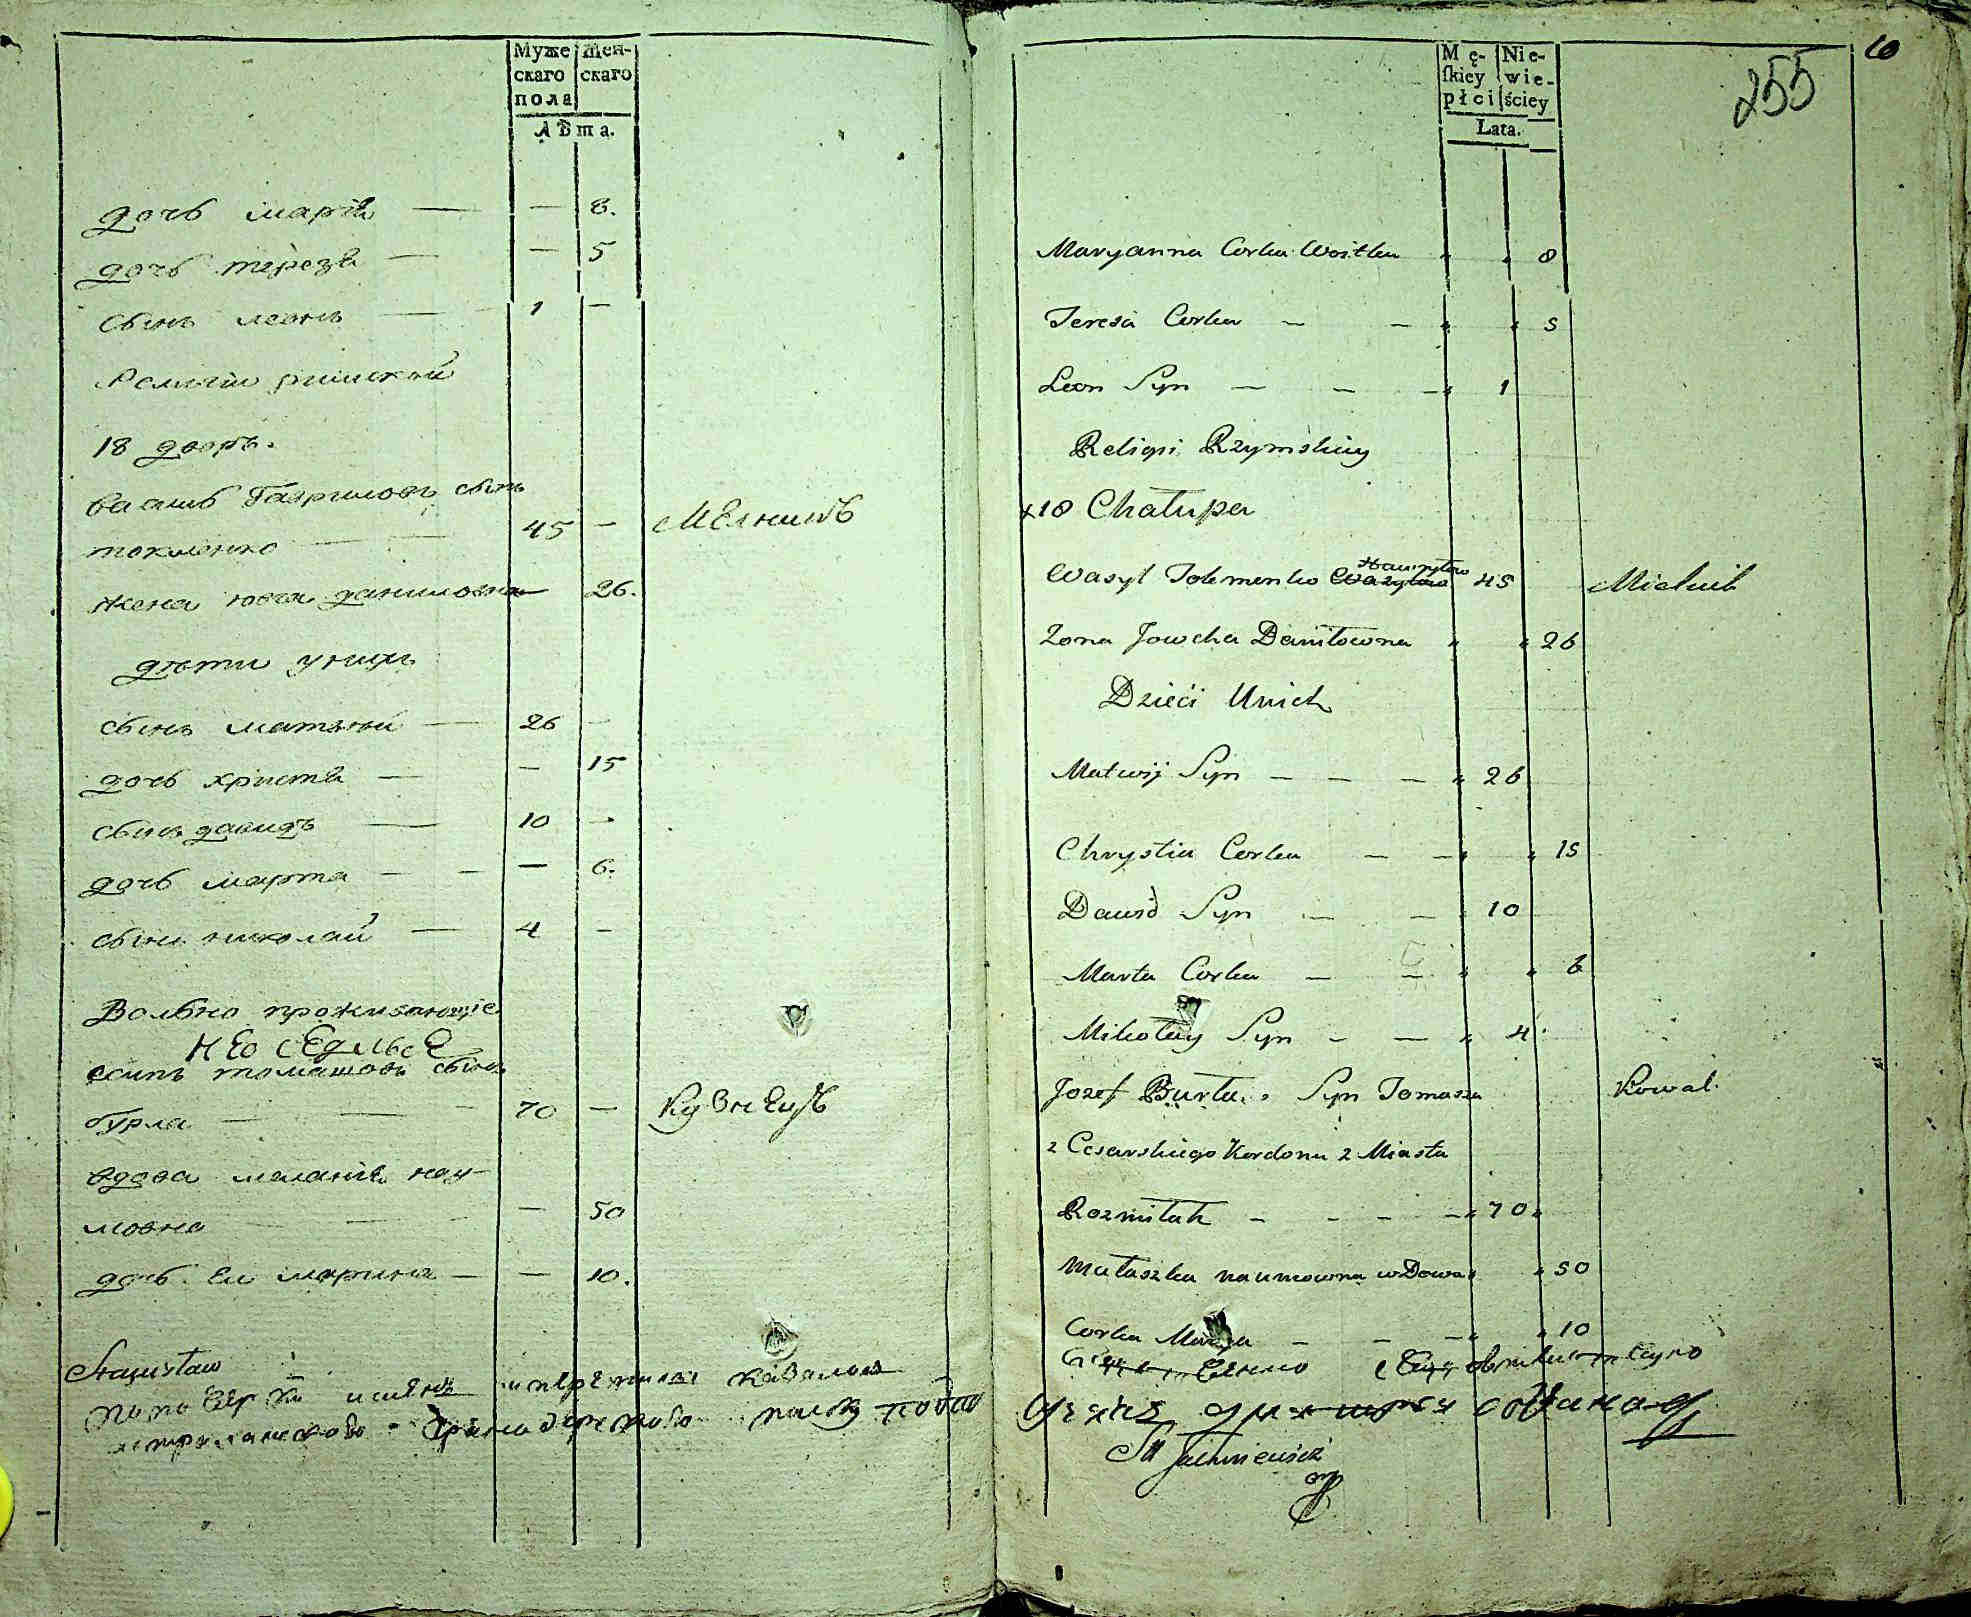 Муже
скаго
пола
Жен-
скаго
Лѣта.
дочь марiя — — 8.
дочь терезя — — 5
сынъ леонъ — 1 —
Религiи римской
18 дворъ.
василь Гавриловъ сынъ
токменко — — 45 — Мелникъ
жена ювга даниловна — 26.
дѣти унiщи
сынъ матвей — 26 —
дочь христя — — 15
сынъ давидъ — 10 —
дочь марта — — — 6.
сынъ николай — 4 —
Вольно проживающiе
НЕоседлые
есипъ томашовъ сынъ
бурла — — — 70 — Кузнецъ
вдова маланiя нау-
мовна — — — — 50
дочь ей марина — — 10.
Stanisław
10
255
Mę-
ſkiey
płci
Nie-
wie-
ściey
Lata.
Maryanna Corka Woitka 8
Teresa Corka — — 5
Leon Syn — — — 1
Religii Rzymskiey
18 Chałupa
Hawryłow
Wasyl Tokmenko 45 Mielnik
Zona Jowcha Daniłowna 26
Dzieci Unich
Matwij Syn — — — 26
Chrystia Corka — — 15
Dawid Syn — — 10
Marta Corka — — 6
Mikołay Syn — — 4
Jozef Burła Syn Tomasza Kowal
z Cesarskiego Kordonu z Miasta
Rozmitah — — — — 70
Małaszka naumowna wDowa 50
Corka — — — 10